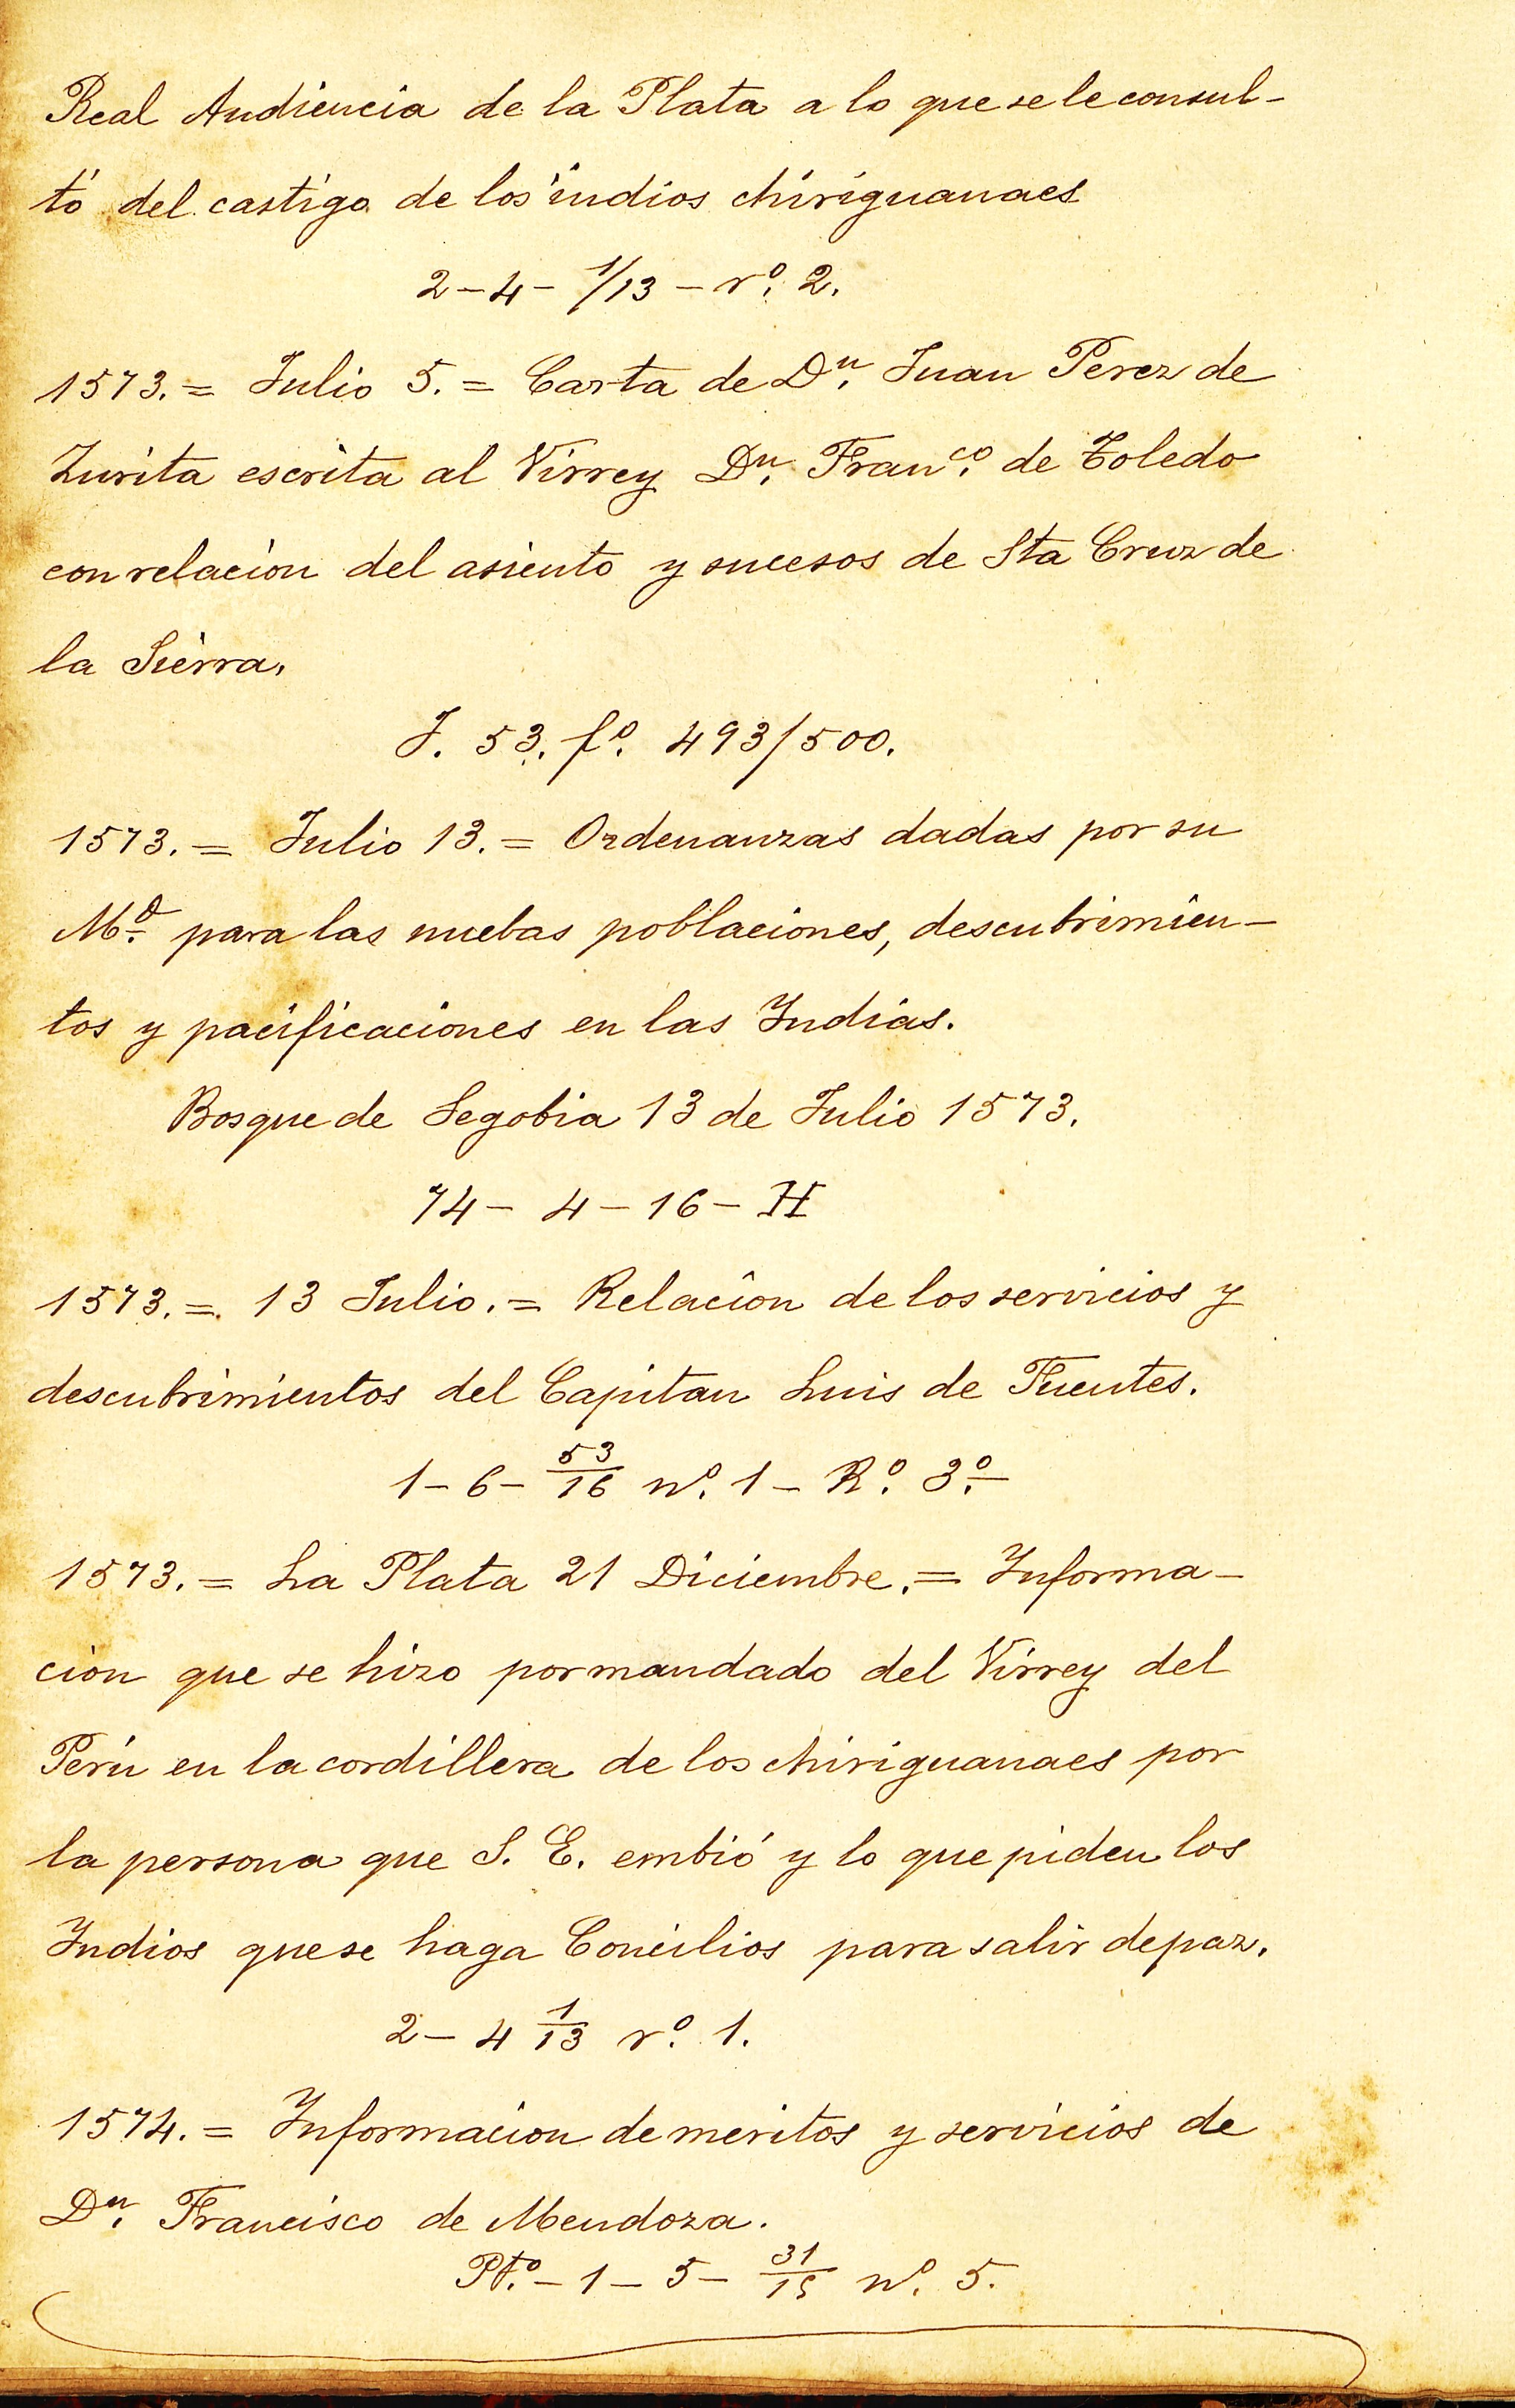 Real Audiencia de la Plata a lo que se le consul-
tó del castigo de los indios chiriguanaes
2-4-1/13-rº. 2.
1573.= Julio 5.= Carta de Dn. Juan Perez de
Zurita escrita al Virrey Dn. Franco. de Toledo
con relacion del asiento y sucesos de Sta Cruz de
la Sierra.
J. 53. fº. 493/500.
1573.= Julio 13.= Ordenanzas dadas por su
Md. para las nuebas poblaciones, descubrimien-
tos y pacificaciones en las Indias.
Bosque de Segobia 13 de Julio 1573.
74- 4-16-H
1573.= 13 Julio.= Relacion de los servicios y
descubrimientos del Capitan Luis de Fuentes.
1-6-53/16 nº. 1-Rº. 3º.
1573.= La Plata 21 Diciembre.= Informa-
cion que se hizo por mandado del Virrey del
Perú en la cordillera de los chiriguanaes por
la persona que S. E. embió y lo que piden los
Indios que se haga Concilios para salir de paz.
2-4 1/13 rº. 1.
1574.= Informacion de meritos y servicios de
Dn. Francisco de Mendoza.
Ptº.-1-5-31/15 nº. 5.